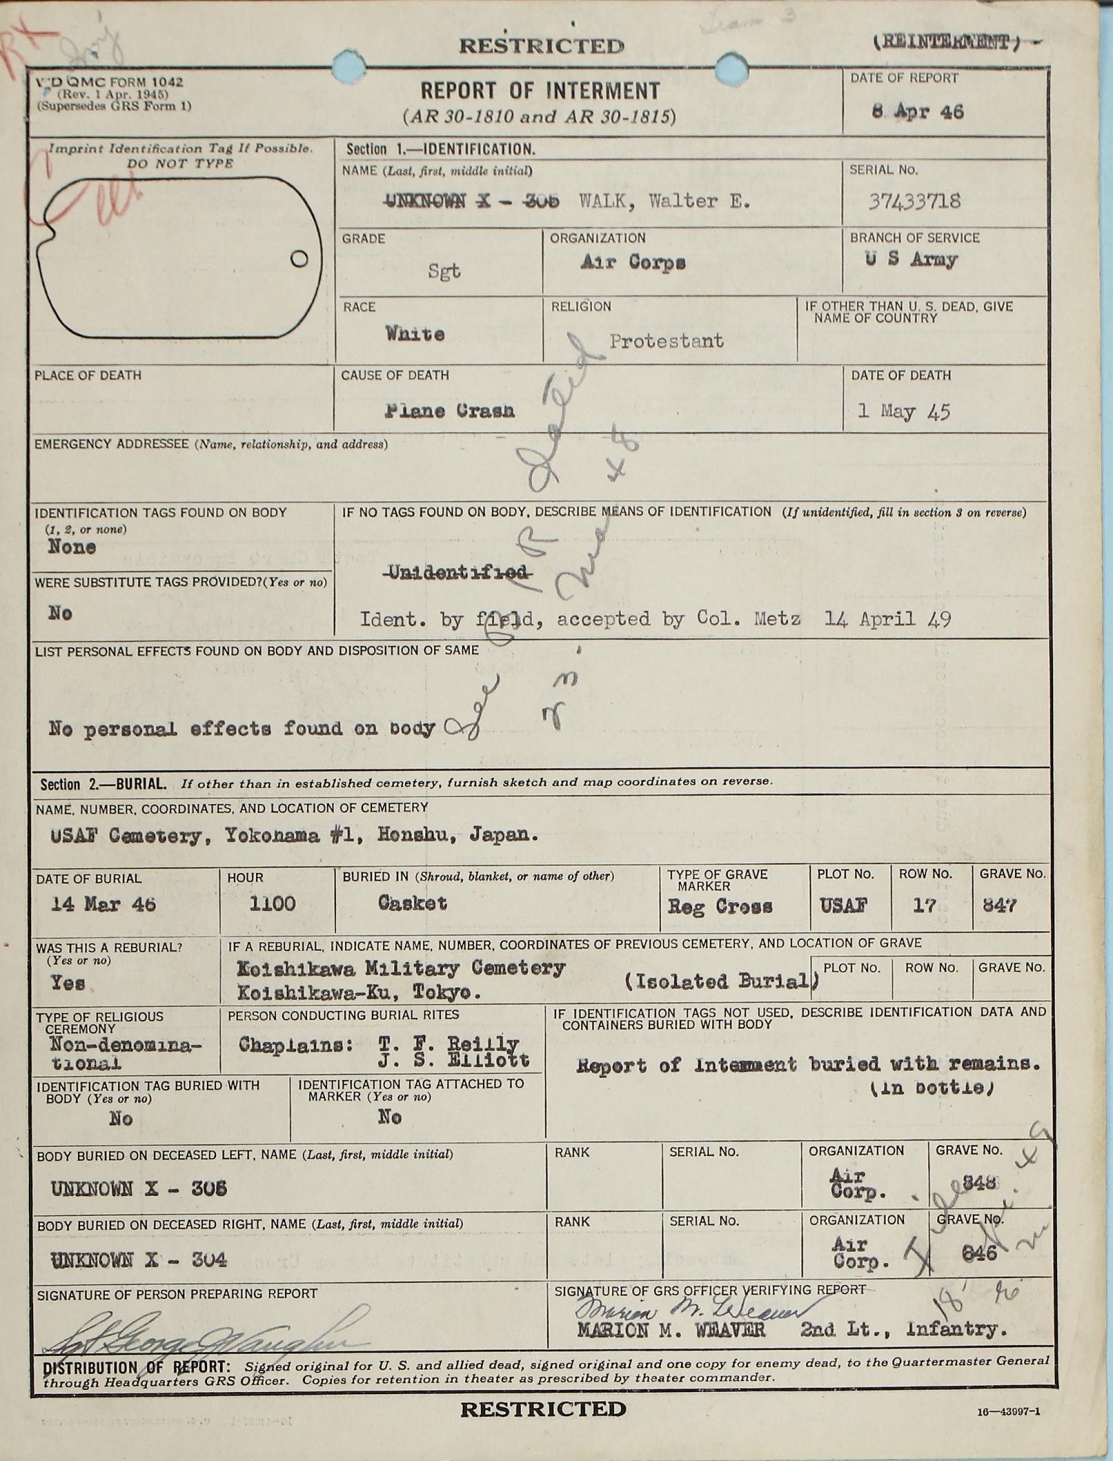 Team 3
RESTRICTED
(REINTERMENT) -
WD QMC FORM 1042
(Rev. 1 Apr. 1945)
(Supersedes GRS Form 1)
REPORT OF INTERMENT
(AR 30-1810 and AR 30-1815)
DATE OF REPORT
8 Apr 46
Imprint Identification Tag If Possible.
DO NOT TYPE
Section 1.—IDENTIFICATION.
NAME (Last, first, middle initial)
UNKNOWN X - 305 WALK, Walter E.
SERIAL No.
37433718
GRADE
Sgt
ORGANIZATION
Air Corps
BRANCH OF SERVICE
U S Army
RACE
White
RELIGION
Protestant
IF OTHER THAN U. S. DEAD, GIVE
NAME OF COUNTRY
PLACE OF DEATH
CAUSE OF DEATH
Plane Crash
DATE OF DEATH
1 May 45
EMERGENCY ADDRESSEE (Name, relationship, and address)
IDENTIFICATION TAGS FOUND ON BODY
(1, 2, or none)
None
IF NO TAGS FOUND ON BODY, DESCRIBE MEANS OF IDENTIFICATION (If unidentified, fill in section 3 on reverse)
Unidentified
WERE SUBSTITUTE TAGS PROVIDED? (Yes or no)
No
Ident. by field, accepted by Col. Metz 14 April 49
See R dated
23 Mar 48
LIST PERSONAL EFFECTS FOUND ON BODY AND DISPOSITION OF SAME
No personal effects found on body
Section 2.—BURIAL. If other than in established cemetery, furnish sketch and map coordinates on reverse.
NAME, NUMBER, COORDINATES, AND LOCATION OF CEMETERY
USAF Cemetery, Yokohama #1, Honshu, Japan.
DATE OF BURIAL
14 Mar 46
HOUR
1100
BURIED IN (Shroud, blanket, or name of other)
Casket
TYPE OF GRAVE
MARKER
Reg Cross
PLOT No.
USAF
ROW No.
17
GRAVE No.
847
WAS THIS A REBURIAL?
(Yes or no)
Yes
IF A REBURIAL, INDICATE NAME, NUMBER, COORDINATES OF PREVIOUS CEMETERY, AND LOCATION OF GRAVE
Koishikawa Military Cemetery
Koishikawa-Ku, Tokyo.
(Isolated Burial)
PLOT No.
ROW No.
GRAVE No.
TYPE OF RELIGIOUS
CEREMONY
Non-denomina-
tional
PERSON CONDUCTING BURIAL RITES
Chaplains: T. F. Reilly
J. S. Elliott
IF IDENTIFICATION TAGS NOT USED, DESCRIBE IDENTIFICATION DATA AND
CONTAINERS BURIED WITH BODY
Report of Interment buried with remains.
(in bottle)
IDENTIFICATION TAG BURIED WITH
BODY (Yes or no)
No
IDENTIFICATION TAG ATTACHED TO
MARKER (Yes or no)
No
BODY BURIED ON DECEASED LEFT, NAME (Last, first, middle initial)
UNKNOWN X - 306
RANK
SERIAL No.
ORGANIZATION
Air
Corp.
GRAVE No.
848
BODY BURIED ON DECEASED RIGHT, NAME (Last, first, middle initial)
UNKNOWN X - 304
RANK
SERIAL No.
ORGANIZATION
Air
Corp.
GRAVE No.
846
SIGNATURE OF PERSON PREPARING REPORT
Sgt George J Vaughn
SIGNATURE OF GRS OFFICER VERIFYING REPORT
Marion M. Weaver
MARION M. WEAVER 2nd Lt., Infantry.
DISTRIBUTION OF REPORT: Signed original for U. S. and allied dead, signed original and one copy for enemy dead, to the Quartermaster General
through Headquarters GRS Officer. Copies for retention in theater as prescribed by theater commander.
RESTRICTED
16—43997-1